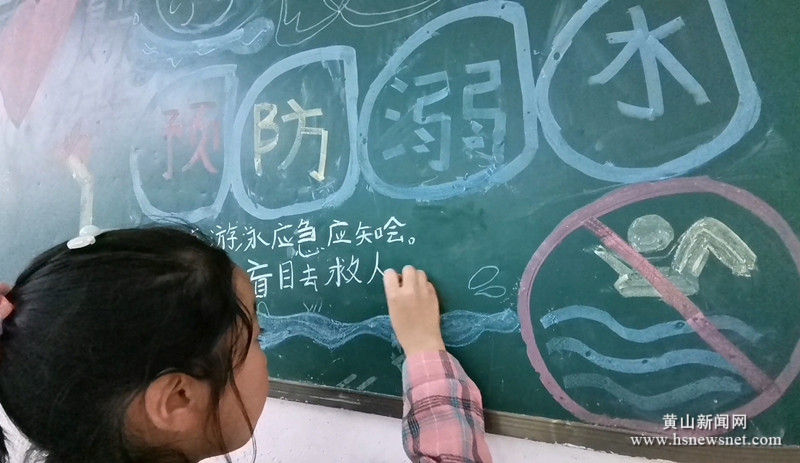 预防溺水
游泳应急应知会。
盲目去救人
黄山新闻网
www.hsnewsnet.com